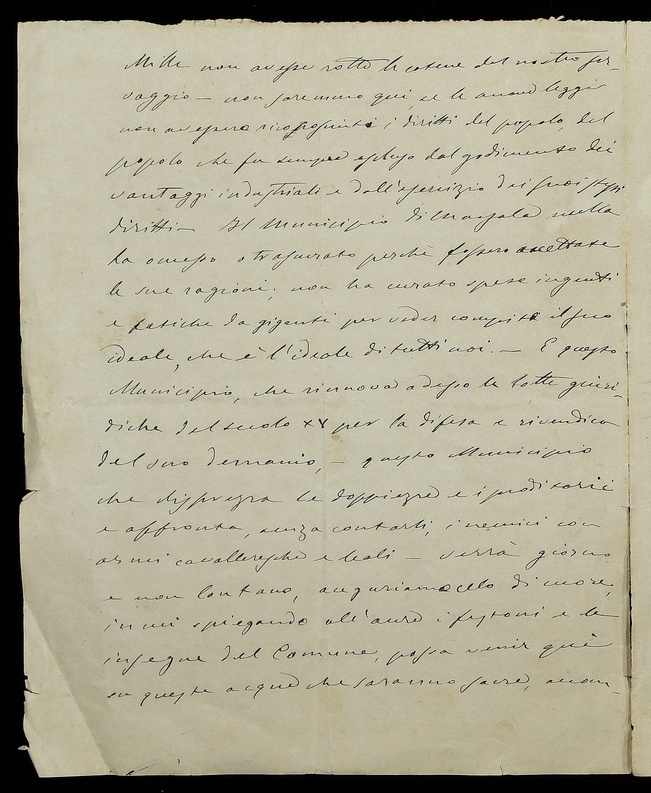 Mille non avesse rotte le catene del nostro ser-
vaggio — non saremmo qui, se le nuove leggi
non avessero riconosciuti i diritti del popolo, del
popolo che fu sempre escluso dal godimento dei
vantaggi industriali e dall'esercizio dei suoi stessi
diritti — Il Municipio di nulla
ha omesso o trascurato perchè fossero accettate
le sue ragioni; non ha curato spese ingenti
e fatiche da giganti per veder compito il suo
ideale, che è l'ideale di tutti noi. — E questo
Municipio, che rinnova adesso le lotte giuri-
diche del secolo XV per la difesa e rivendica
del suo demanio, — questo Municipio
che disprezza le doppiezze e i proditorii
e affronta, senza contarli, i nemici con
armi cavalleresche e leali — verrà giorno
e non lontano, auguriamocelo di cuore,
in cui spiegando all'aure i festoni e le
insegne del Comune, possa venir quì
su queste acque che saranno sacre,